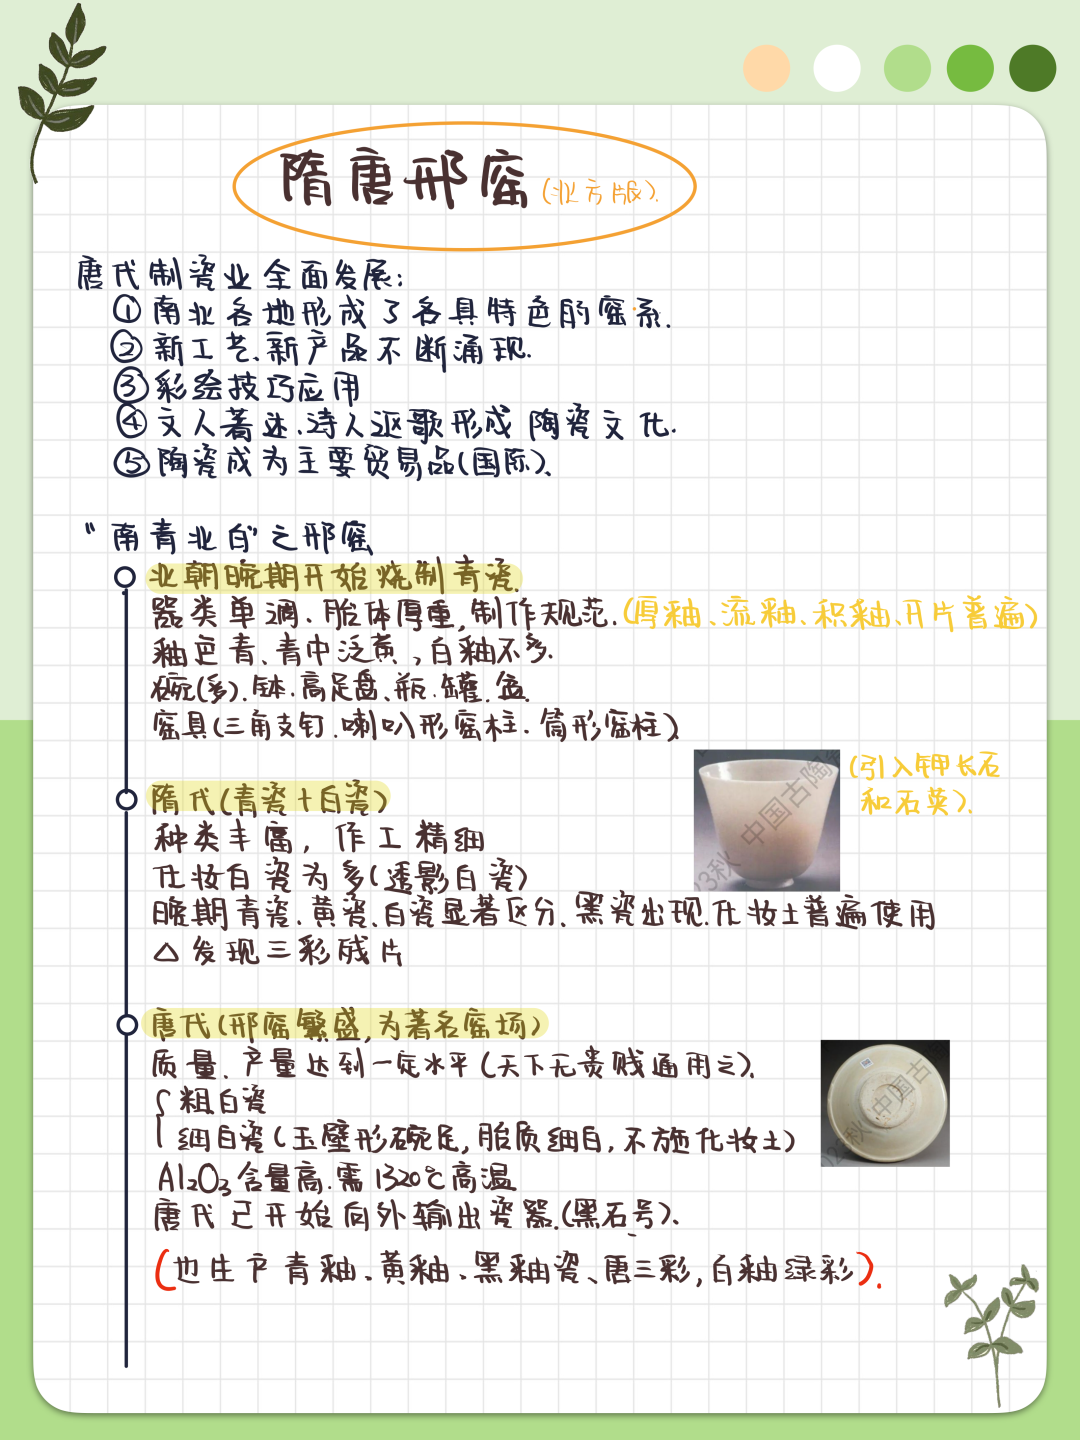 隋唐邢窑(北方版).
唐代制瓷业全面发展:
①南北各地形成了各具特色的窑系.
②新工艺、新产品不断涌现.
③彩绘技巧应用
④文人著述、诗人讴歌形成陶瓷文化.
⑤陶瓷成为主要贸易品(国际)、
"南青北白"之邢窑
北朝晚期开始烧制青瓷.
器类单调、胎体厚重,制作规范.(厚釉、流釉、积釉、开片普遍)
釉色青、青中泛黄,白釉不多.
碗(多)、钵、高足盘、瓶、罐、盒.
窑具(三角支钉、喇叭形窑柱、筒形窑柱)
(引入钾长石
和石英).
隋代(青瓷+白瓷)
种类丰富,作工精细
化妆白瓷为多(透影白瓷)
晚期青瓷、黄瓷、白瓷显著区分、黑瓷出现.化妆土普遍使用
△发现三彩残片
唐代(邢窑繁盛,为著名窑场)
质量、产量达到一定水平(天下无贵贱通用之).
粗白瓷
细白瓷(玉璧形碗足,胎质细白,不施化妆土)
Al₂O₃含量高.需1320℃高温
唐代已开始向外输出瓷器.(黑石号)、
(也生产青釉、黄釉、黑釉瓷、唐三彩,白釉绿彩).
中国古陶瓷
23秋
中国古
023秋